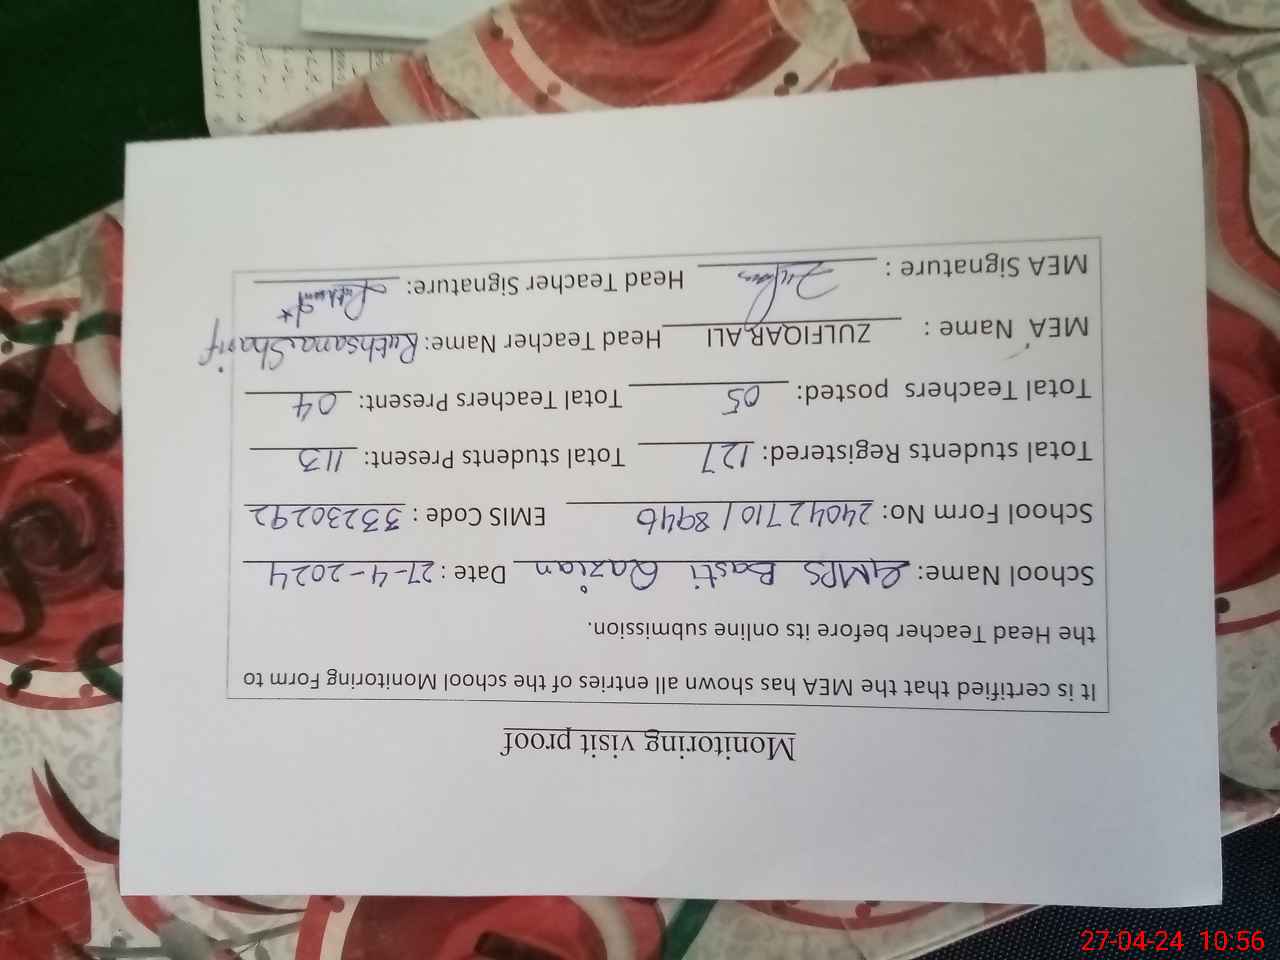 Monitoring visit proof
It is certified that the MEA has shown all entries of the school Monitoring Form to
the Head Teacher before its online submission.
School Name: GMPS Basti Qazian Date : 27-4-2024
School Form No: 24042710/8946 EMIS Code : 33230292
Total students Registered: 127 Total students Present: 113
Total Teachers posted: 05 Total Teachers Present: 04
MEA Name : ZULFIQAR ALI Head Teacher Name: Rukhsana Sharif
MEA Signature : Head Teacher Signature:
27-04-24 10:56